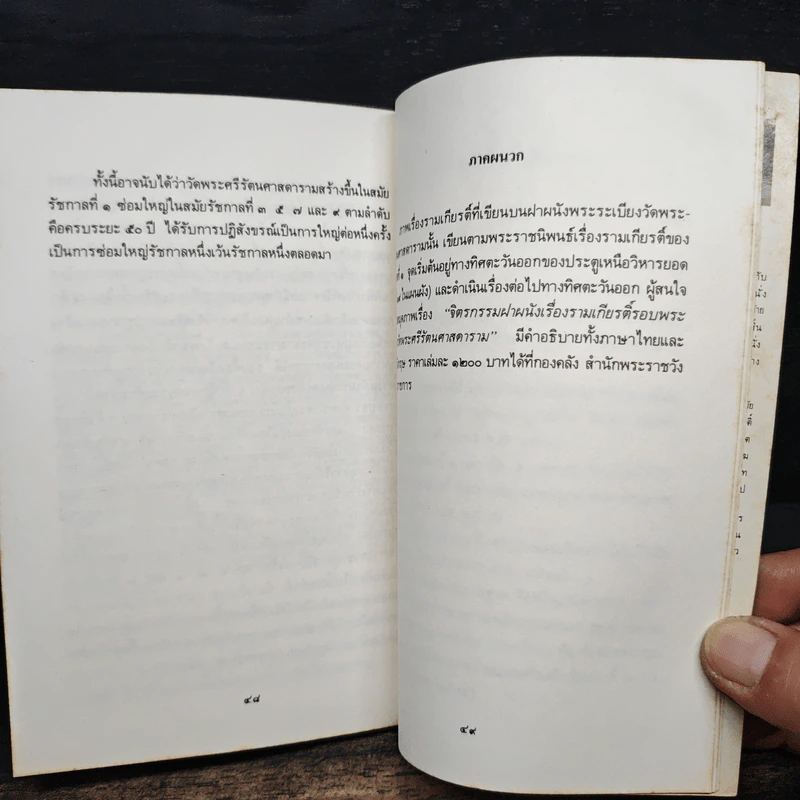 ทั้งนี้อาจนับได้ว่าวัดพระศรีรัตนศาสดารามสร้างขึ้นในสมัย
รัชกาลที่ ๑ ซ่อมใหญ่ในสมัยรัชกาลที่ ๓ ๕ ๗ และ ๙ ตามลำดับ
คือครบระยะ ๕๐ ปี ได้รับการปฏิสังขรณ์เป็นการใหญ่ต่อหนึ่งครั้ง
เป็นการซ่อมใหญ่รัชกาลหนึ่งเว้นรัชกาลหนึ่งตลอดมา
๔๘
ภาคผนวก
ภาพเรื่องรามเกียรติ์ที่เขียนบนฝาผนังพระระเบียงวัดพระ-
ศาสดารามนั้น เขียนตามพระราชนิพนธ์เรื่องรามเกียรติ์ของ
ที่ ๑ จุดเริ่มต้นอยู่ทางทิศตะวันออกของประตูเหนือวิหารยอด
ในแผนผัง) และดำเนินเรื่องต่อไปทางทิศตะวันออก ผู้สนใจ
สมุดภาพเรื่อง "จิตรกรรมฝาผนังเรื่องรามเกียรติ์รอบพระ
วัดพระศรีรัตนศาสดาราม" มีคำอธิบายทั้งภาษาไทยและ
ราคาเล่มละ ๑๒๐๐ บาทได้ที่กองคลัง สำนักพระราชวัง
ราชการ
๔๙